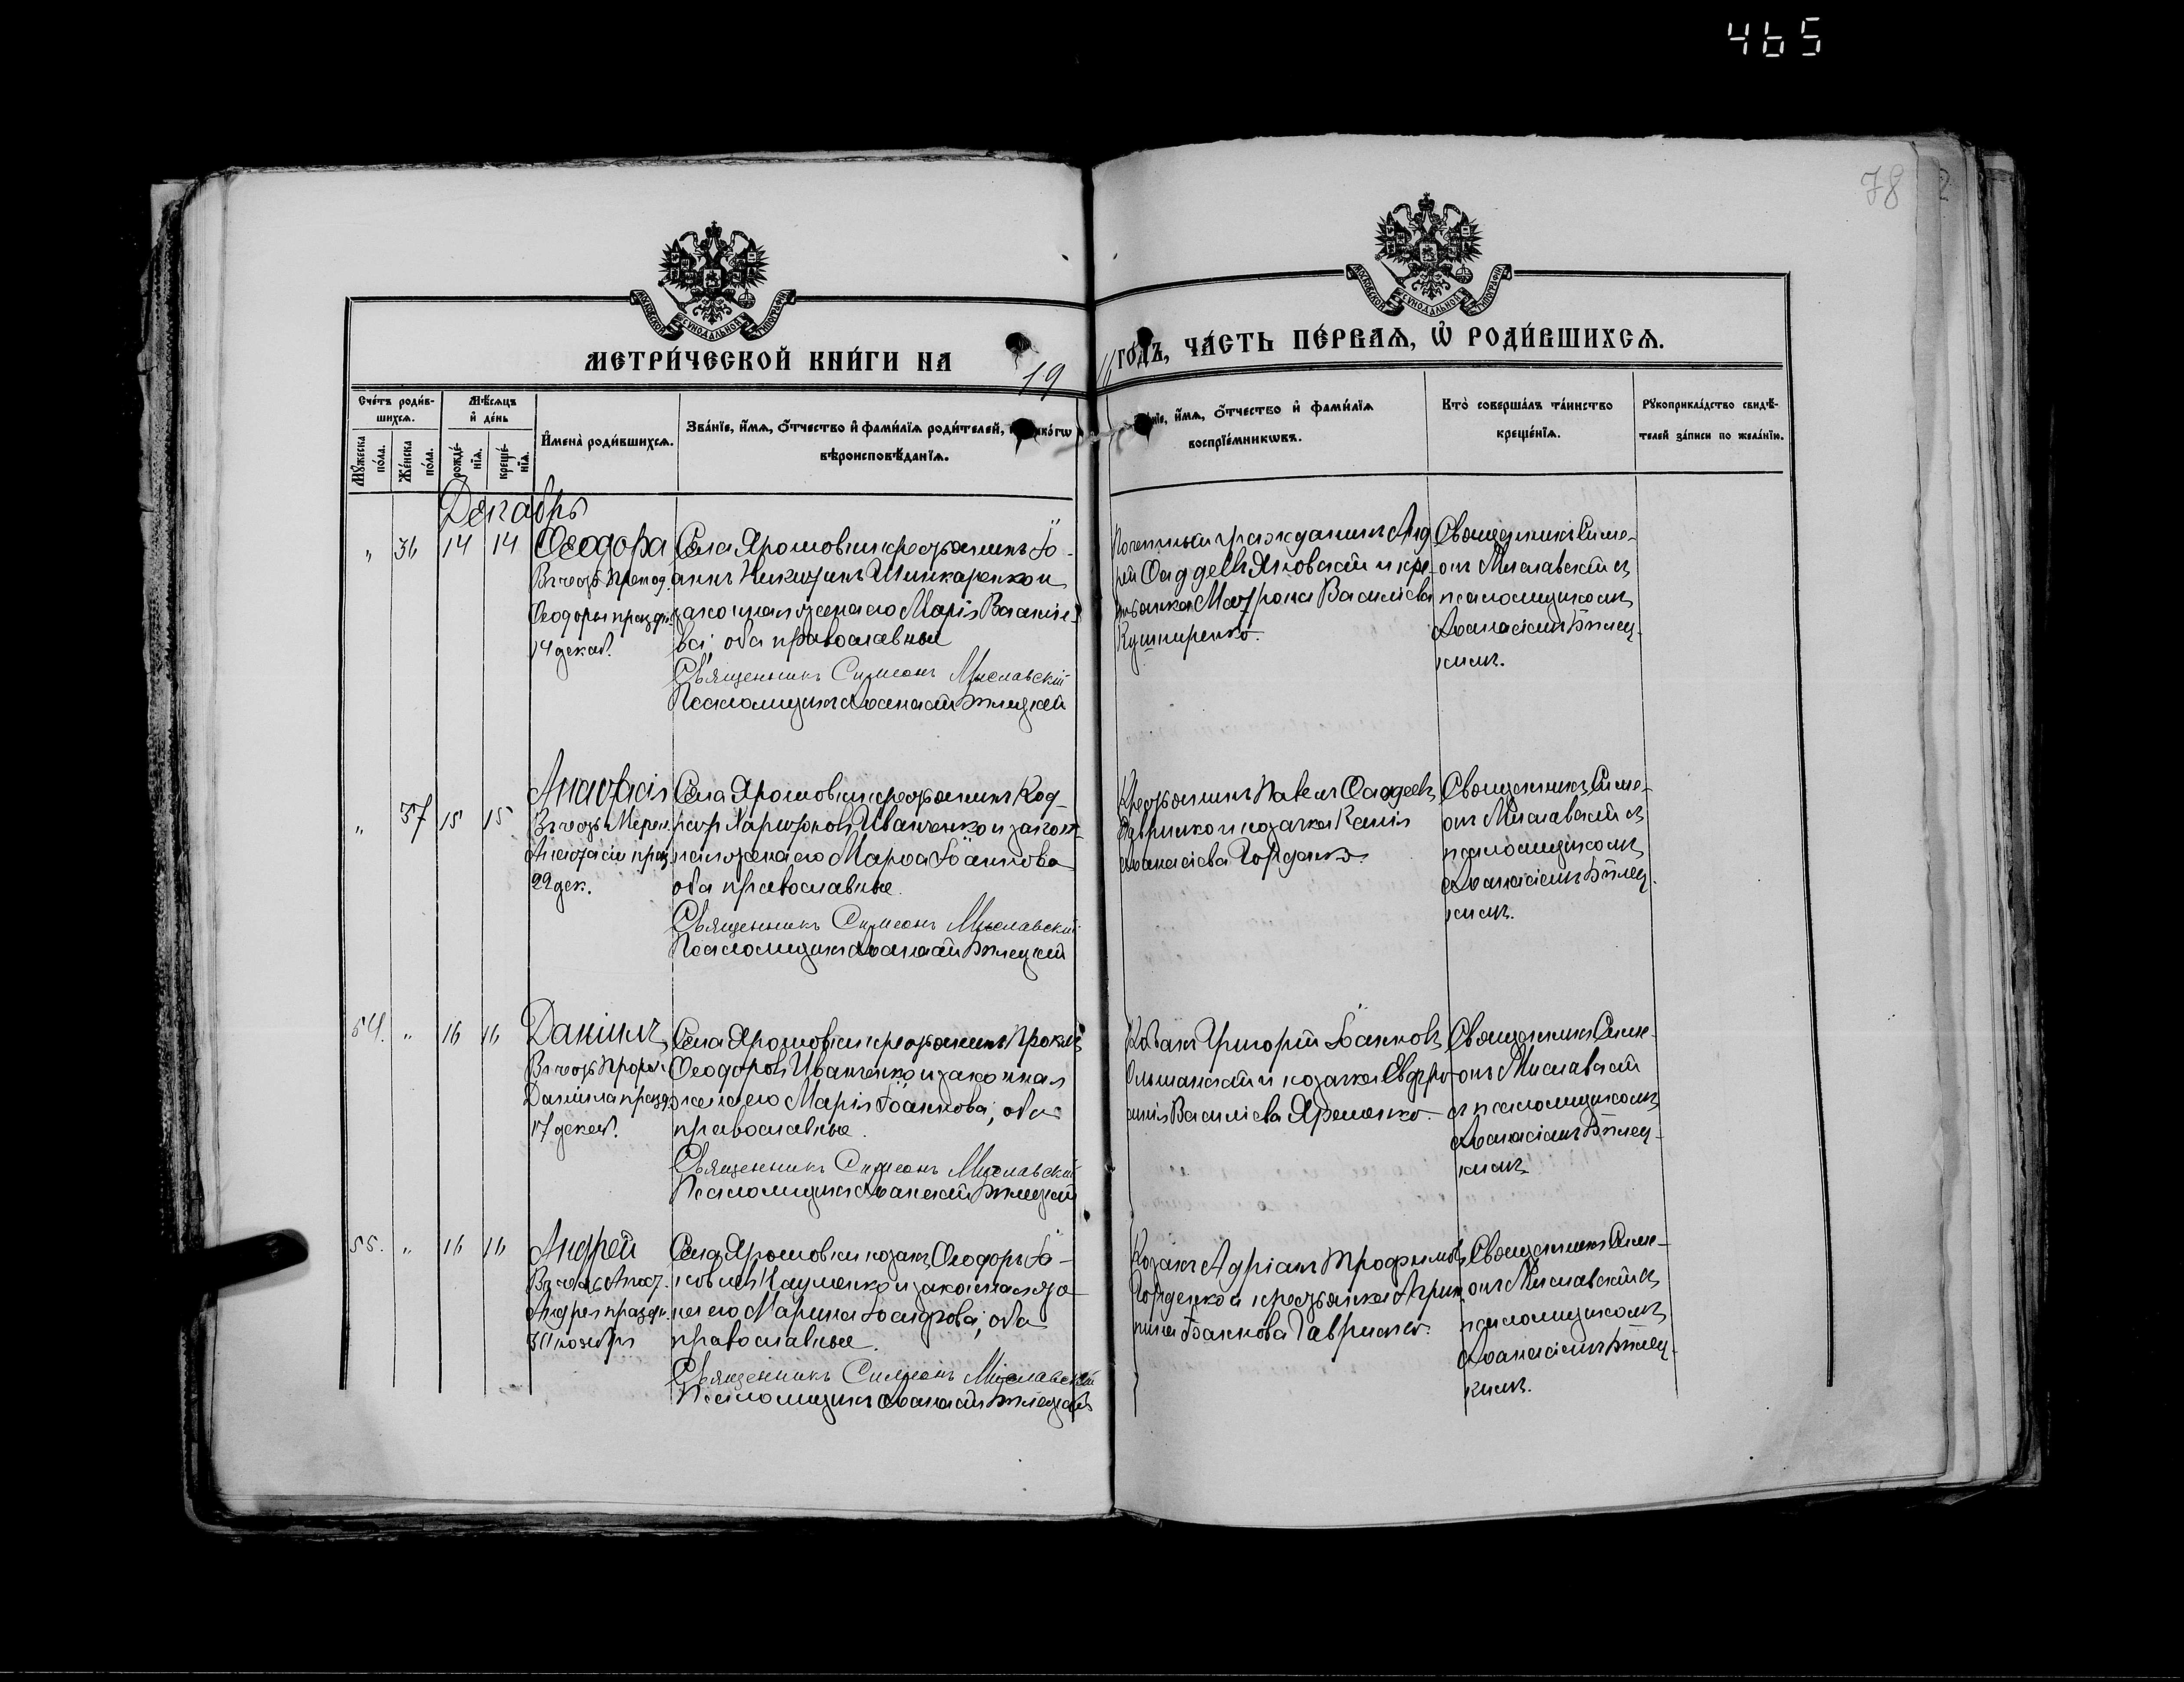 465
78
МОСКОВСКОЙ СѴНОДАЛЬНОЙ ТИПОГРАФІИ
МОСКОВСКОЙ СѴНОДАЛЬНОЙ ТИПОГРАФІИ
МЕТРИ́ЧЕСКОЙ КНИ́ГИ НА 19
16 ГО́ДЪ, ЧА́СТЬ ПЕ́РВАѦ, Ѡ҆ РОДИ́ВШИХСѦ.
Сче́тъ роди́в-
шихсѧ.
Мѣ́сѧцъ
и҆ де́нь
Мꙋ́жеска
по́ла.
Же́нска
по́ла.
рожде́-
нїѧ.
креще́-
нїѧ.
И҆мена̀ роди́вшихсѧ.
Зва́нїе, и҆́мѧ, ѻ҆́тчество и҆ фами́лїѧ роди́телей,
вѣроисповѣ́данїѧ.
и҆́мѧ, ѻ҆́тчество и҆ фами́лїѧ
воспрїе́мникѡвъ.
Кто̀ соверша́лъ та́инство
креще́нїѧ.
Рꙋкоприкла́дство свидѣ́-
телей за́писи по жела́нїю.
Декабрь
" 36 14 14 Ѳеодора
Въ честь Препод.
Ѳеодоры праздн.
14 декаб.
Села Ярошовки крестьянинъ Іо-
аннъ Никитинъ Шинкаренко и
законная жена его Марія Василіе-
ва, оба православные
Священникъ Симеонъ Миславскій
Псаломщикъ Аѳанасій Бѣлецкій
Почетный гражданинъ Анд
рей Ѳаддеевъ Яновскій и кре-
стьянка Матрона Василіева
Кушниренко.
Священникъ Симе-
онъ Миславскій съ
псаломщикомъ
Аѳанасіемъ Бѣлец-
кимъ.
" 37 15 15 Анастасія
Въ честь Мучен.
Анастасіи праз.
22 дек.
Села Ярошовки крестьянинъ Код-
ратъ Харитоновъ Иванченко и закон-
ная жена его Марѳа Іоаннова
оба православные.
Священникъ Симеонъ Миславскій
Псаломщикъ Аѳанасій Бѣлецкій
Крестьянинъ Павелъ Ѳаддеевъ
Гаврилко и козачка Ксенія
Аѳанасіева Горденко.
Священникъ Симе-
онъ Миславскій съ
псаломщикомъ
Аѳанасіемъ Бѣлец-
кимъ.
54. " 16 16 Даніилъ
Въ честь Прор.
Даніила празд.
17 декаб.
Села Ярошовки крестьянинъ Проклъ
Ѳеодоровъ Иванченко и законная
жена его Марія Іоаннова, оба
православные.
Священникъ Симеонъ Миславскій
Псаломщикъ Аѳанасій Бѣлецкій
Козакъ Григорій Іоанновъ
Ольшанскій и козачка Евфро-
синія Василіева Яременко.
Священникъ Симе-
онъ Миславскій
съ псаломщикомъ
Аѳанасіемъ Бѣлец-
кимъ
55. " 16 16 Андрей
Въ честь Апост.
Андрея праздн.
30 ноября
Села Ярошовки козакъ Ѳеодоръ Іа-
ковлевъ Науменко и законная же-
на его Марина Іоасафова, оба
православные.
Священникъ Симеонъ Миславскій
Псаломщикъ Аѳанасій Бѣлецкій
Козакъ Адріанъ Трофимовъ
Горденко и крестьянка Агрип-
пина Іоаннова Гаврилко.
Священникъ Симе-
онъ Миславскій съ
псаломщикомъ
Аѳанасіемъ Бѣлец-
кимъ.